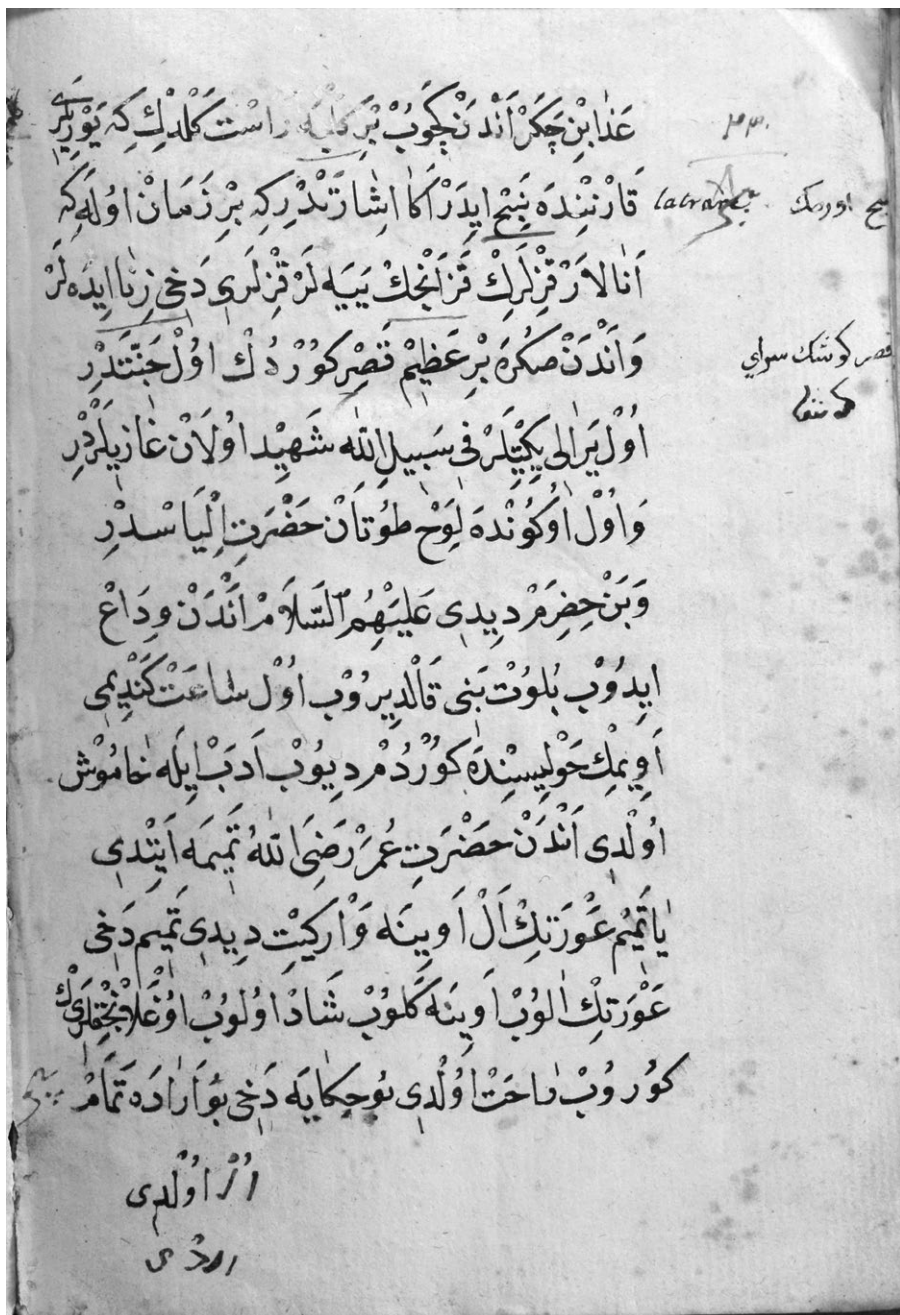 عَذَابِنْ چَكَرْ اَنْدَنْ چَكُوبْ بِرْ كَلْبَه رَاسْت كَلْدِكْ كِه يَوْرِيلَرِى
قَارْنِنْدَه نَبْحْ ايدَرْ اَكَا اِشَارَتْدِرْ كِه بِرْ زَمَانْ اوُلَه كِه
اَنَالَارْ قِزْلَرِكْ قَزَانْجِكْ يَيَه لَرْ قِزْلَرِى دَخِى زِنَا ايِدَه لَرْ
وَاَنْدَنْ صَكْرَه بِرْ عَظِيمْ قَصِرْ كوُرْدُكْ اوُلْ جَنَّتَدِرْ
اوُلْ يَرَالِى يِكِيتْلَرْ فِى سَبِيلِ اللّٰه شَهِيْد اوُلَانْ غَازِيلَرْدِرْ
وَاوُلْ اوُكوُنْدَه لَوْح طوُتَانْ حَضْرَتِ اِلْيَاسْدِرْ
وَبَنْ حِضِرَمْ دِيدِى عَلَيْهِمُ السَّلَامْ اَنْدَنْ وِدَاعْ
ايِدوُبْ بُلوُتْ بَنِى قَالْدِيرُوبْ اوُلْ سَاعَتْ كَنْدِيمِى
اَوِيمِكْ حَوْلِيسِنْدَه كوُرْدُمْ دِيوُبْ اَدَبْ اِيلَه خَاموُشْ
اوُلْدِى اَنْدَنْ حَضْرَتِ عُمَرْ رَضِىَ اللّٰهُ تَمِيمَه اَيِتْدِى
يَا تَمِيمْ عَوْرَتِكْ اَلْ اَوِينَه وَارْكِيتْ دِيدِى تَمِيمْ دَخِى
عَوْرَتِكْ الُوبْ اَوِينَه كَلوُبْ شَادْ اوُلوُبْ اوُغْلَانْجِقْلَرِيكْ
كوُروُبْ رَاحَتْ اوُلْدِى بوُ حِكَايَه دَخِى بوُ اَرَادَه تَمَامْ
اوُلْدِى
٢٣٠
latrare
نبح اورمك
قصر كوشك سراي